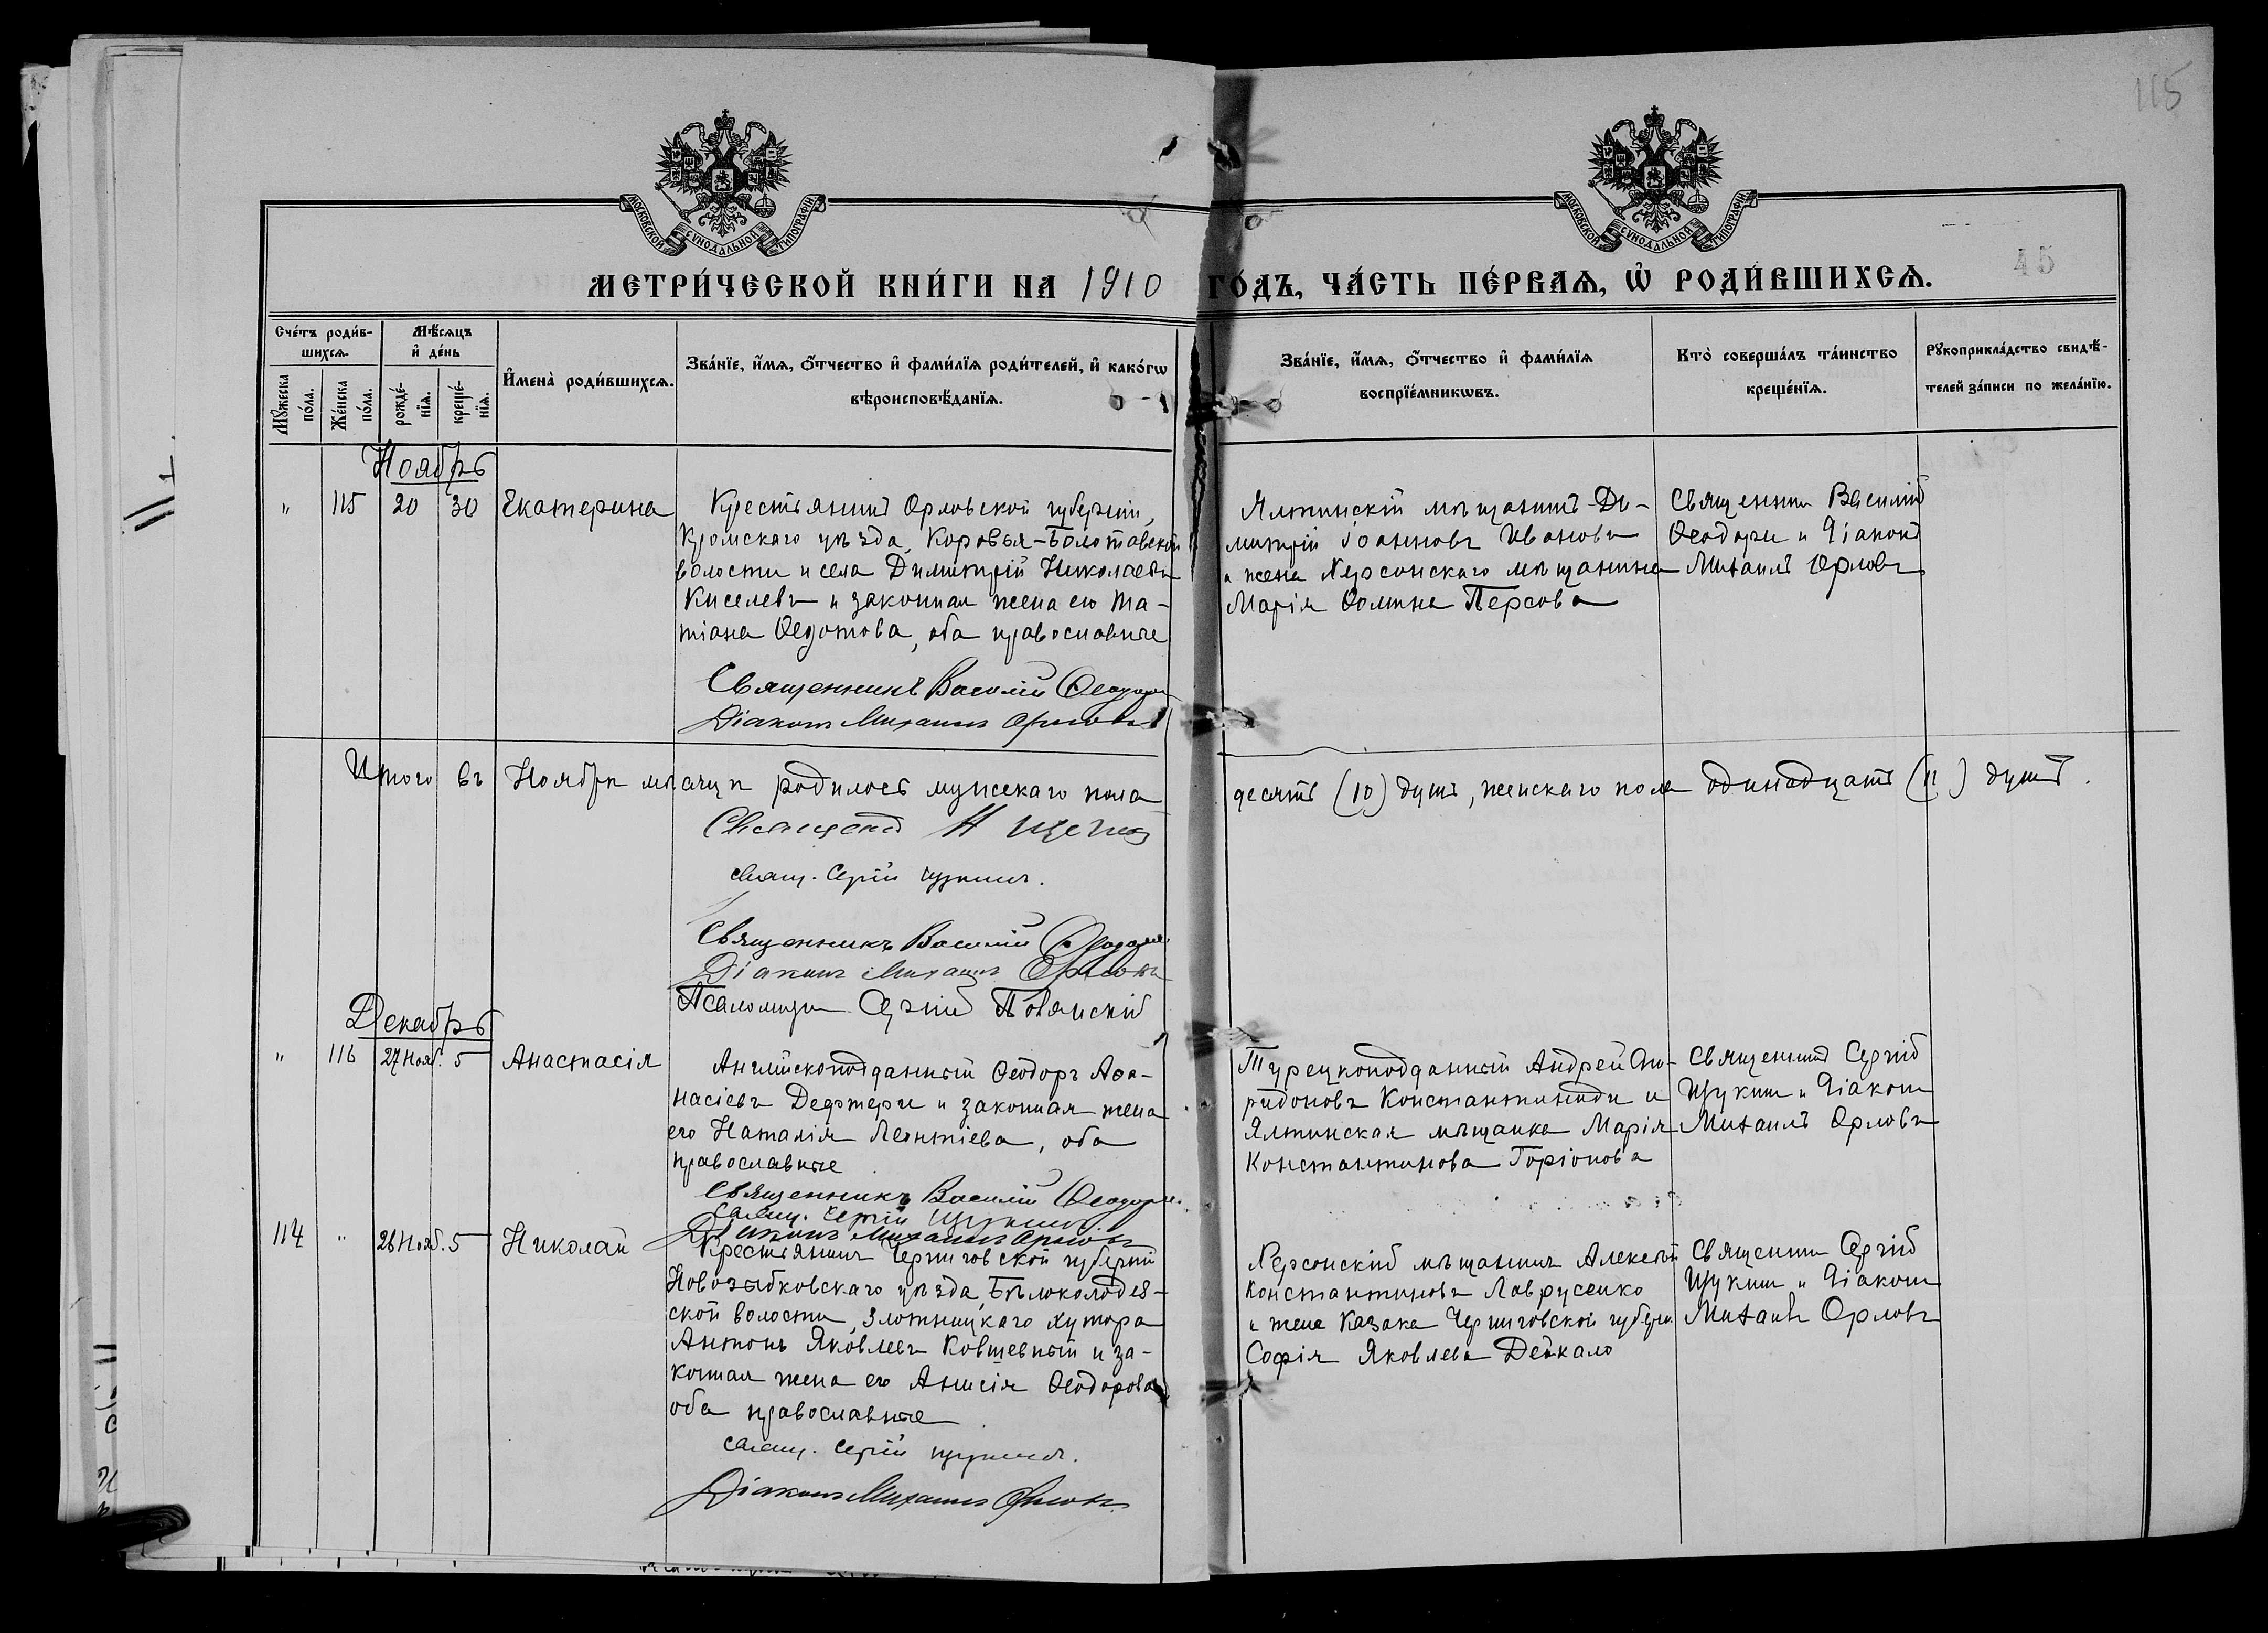 115
МОСКОВСКОЙ СѴНОДАЛЬНОЙ ТИПОГРАФІИ
МОСКОВСКОЙ СѴНОДАЛЬНОЙ ТИПОГРАФІИ
45
МЕТРИ́ЧЕСКОЙ КНИ́ГИ НА 1910 ГО́ДЪ, ЧА́СТЬ ПЕ́РВАѦ, Ѡ҆ РОДИ́ВШИХСѦ.
Сче́тъ роди́в-
шихсѧ.
Мꙋ́жеска по́ла.
Же́нска по́ла.
Мѣ́сѧцъ
и҆ де́нь
рожде́-
нїѧ.
креще́-
нїѧ.
И҆мена̀ роди́вшихсѧ.
Зва́нїе, и҆́мѧ, ѻ҆́тчество и҆ фами́лїѧ роди́телей, и҆ како́гѡ
вѣроисповѣ́данїѧ.
Зва́нїе, и҆́мѧ, ѻ҆́тчество и҆ фами́лїѧ
воспрїе́мникѡвъ.
Кто̀ соверша́лъ та́инство
креще́нїѧ.
Рꙋкоприкла́дство свидѣ́-
телей за́писи по жела́нїю.
Ноябрь
" 115 20 30 Екатерина
Крестьянинъ Орловской губерніи,
Кромскаго уѣзда, Коровья-Болотовской
волости и села Димитрій Николаевъ
Киселевъ и законная жена его Та-
тіана Ѳедотова, оба православные
Священникъ Василій Ѳеодори
Діаконъ Михаилъ Орловъ
Ялтинскій мѣщанинъ Ди-
митрій Іоанновъ Ивановъ
и жена Херсонскаго мѣщанина
Марія Ѳомина Персова
Священник Василій
Ѳеодори и Діаконъ
Михаилъ Орловъ
Итого въ Ноябрѣ мѣсяцѣ родилось мужскаго пола десять (10) душъ, женскаго пола одинадцать (11) душъ.
Священ. Н Щегло
свящ. Сергій Щукинъ.
Священникъ Василій Ѳеодори
Діаконъ Михаилъ Орловъ
Псаломщ Сергій
Декабрь
" 116 27 Нояб. 5 Анастасія
Англійскоподданный Ѳеодоръ Аѳа-
насіевъ Дефтери и законная жена
его Наталія Леонтіева, оба
православные
Священникъ Василій Ѳеодори.
свящ. Сергій Щукинъ
Діаконъ Михаилъ Орловъ
Турецкоподданный Андрей Спи-
ридоновъ Константиниди и
Ялтинская мѣщанка Марія
Константинова Горіонова
Священникъ Сергій
Щукин и Діакон
Михаилъ Орловъ
114 " 26 Нояб. 5 Николай
Крестьянинъ Черниговской губерніи
Новозыбковскаго уѣзда, Бѣлоколодез-
ской волости, Злотницкаго хутора
Антонъ Яковлевъ Ковшевный и за-
конная жена его Анисія Ѳеодорова
оба православные
свящ. Сергій Щукинъ.
Діаконъ Михаилъ Орловъ
Херсонскій мѣщанинъ Алексѣй
Константиновъ Лаврусенко
и жена казака Черниговской губерн.
Софія Яковлева Дейкало
Священник Сергій
Щукин и Діакон
Михаилъ Орловъ